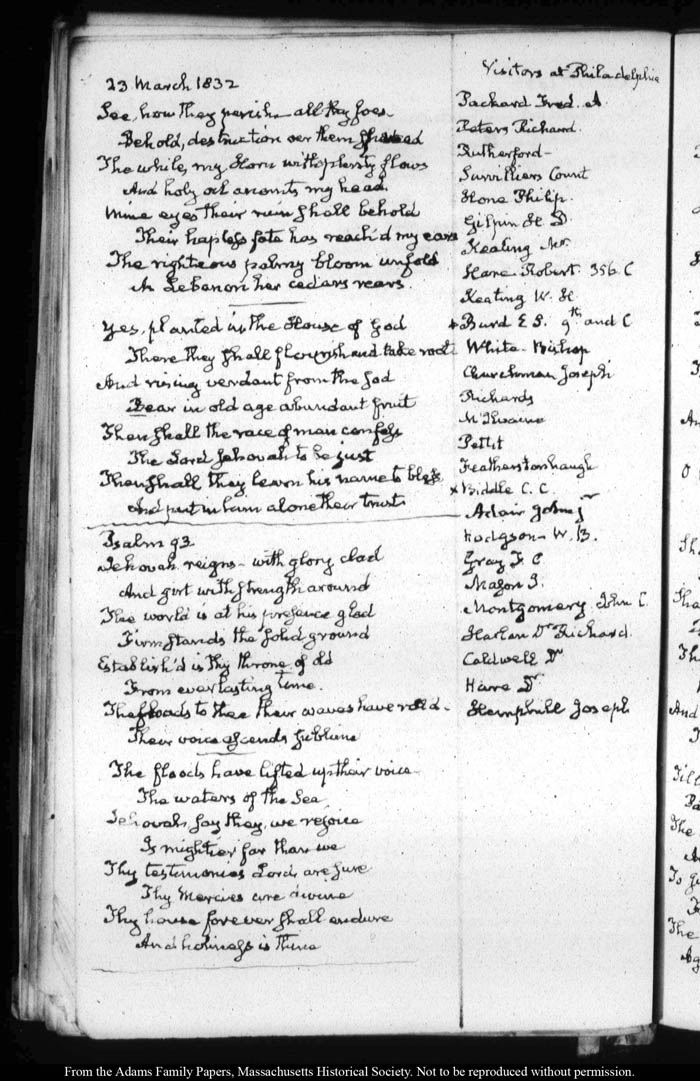 23 March 1832
See, how they perish all thy foes.
Behold, destruction oer them
The while, my Horn with plenty flows
And holy oil anoints my head.
Mine eyes their ruin shall behold
Their hapless fate has reach'd my ears
The righteous palmy bloom unfold
As Lebanon her cedars rears.
Yes, planted in the House of God
There they shall flourish and take root
And rising verdant from the sod
Bear in old age abundant fruit
Then shall the race of man confess
The Lord Jehovah to be just
Then shall they learn his name to bless
And put in him alone their trust.
Psalm 93
Jehovah reigns with glory clad
And girt with strength around
The world is at his presence glad
Firm stands the solid ground
Establish'd is thy throne of old
From everlasting time.
The floods to thee their waves have roll'd.
Their voice ascends sublime
The floods have lifted up their voice
The waters of the Sea,
Jehovah, say they, we rejoice
Is mightier far than we
Thy testimonies Lord, are sure
Thy Mercies are divine
Thy house forever shall endure
And holiness is thine
Visitors at Philadelphia
Packard Fred. A.
Peters Richard.
Rutherford
Survilliers Count
Hone Philip.
Gilpin H. D.
Keating Mr.
Hare Robert. 356. C
Keating W. H
Burd E S. 9th and C
White. Bishop
Churchman Joseph
Richards
McIlvaine
Pettit
Featherstonhaugh
x Biddle C. C.
Adair John Jr
Hodgson W. B.
Gray F. C.
Mason J.
Montgomery John C.
Harlan Dr Richard.
Caldwell Dr
Hare Dr
Hemphill Joseph
From the Adams Family Papers, Massachusetts Historical Society. Not to be reproduced without permission.